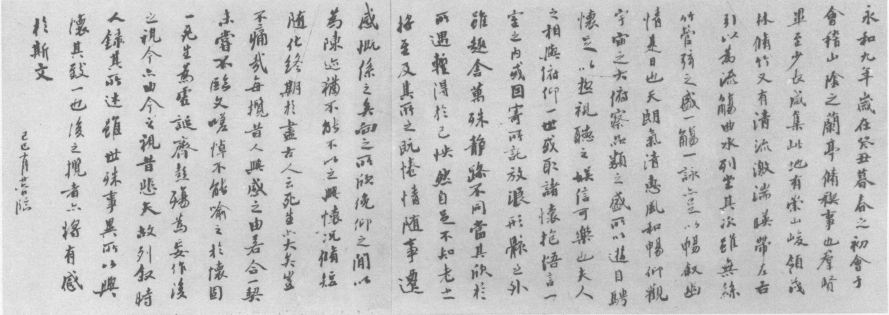 永和九年歲在癸丑暮春之初會于
會稽山陰之蘭亭脩稧事也羣賢
畢至少長咸集此地有崇山峻領茂
林脩竹又有清流激湍暎帶左右
引以為流觴曲水列坐其次雖無絲
竹管弦之盛一觴一詠亦足以暢敘幽
情是日也天朗氣清惠風和暢仰觀
宇宙之大俯察品類之盛所以遊目騁
懷足以極視聽之娛信可樂也夫人
之相與俯仰一世或取諸懷抱悟言一
室之內或因寄所託放浪形骸之外
雖趣舍萬殊靜躁不同當其欣於
所遇暫得於己快然自足不知老之
將至及其所之既惓情隨事遷
感慨係之矣向之所欣俛仰之間以
為陳迹猶不能不以之興懷況脩短
隨化終期於盡古人云死生亦大矣豈
不痛哉每攬昔人興感之由若合一契
未嘗不臨文嗟悼不能喻之於懷固
一死生為虛誕齊彭殤為妄作後
之視今亦由今之視昔悲夫故列敘時
人錄其所述雖世殊事異所以興
懷其致一也後之攬者亦將有感
於斯文
己巳十月臨